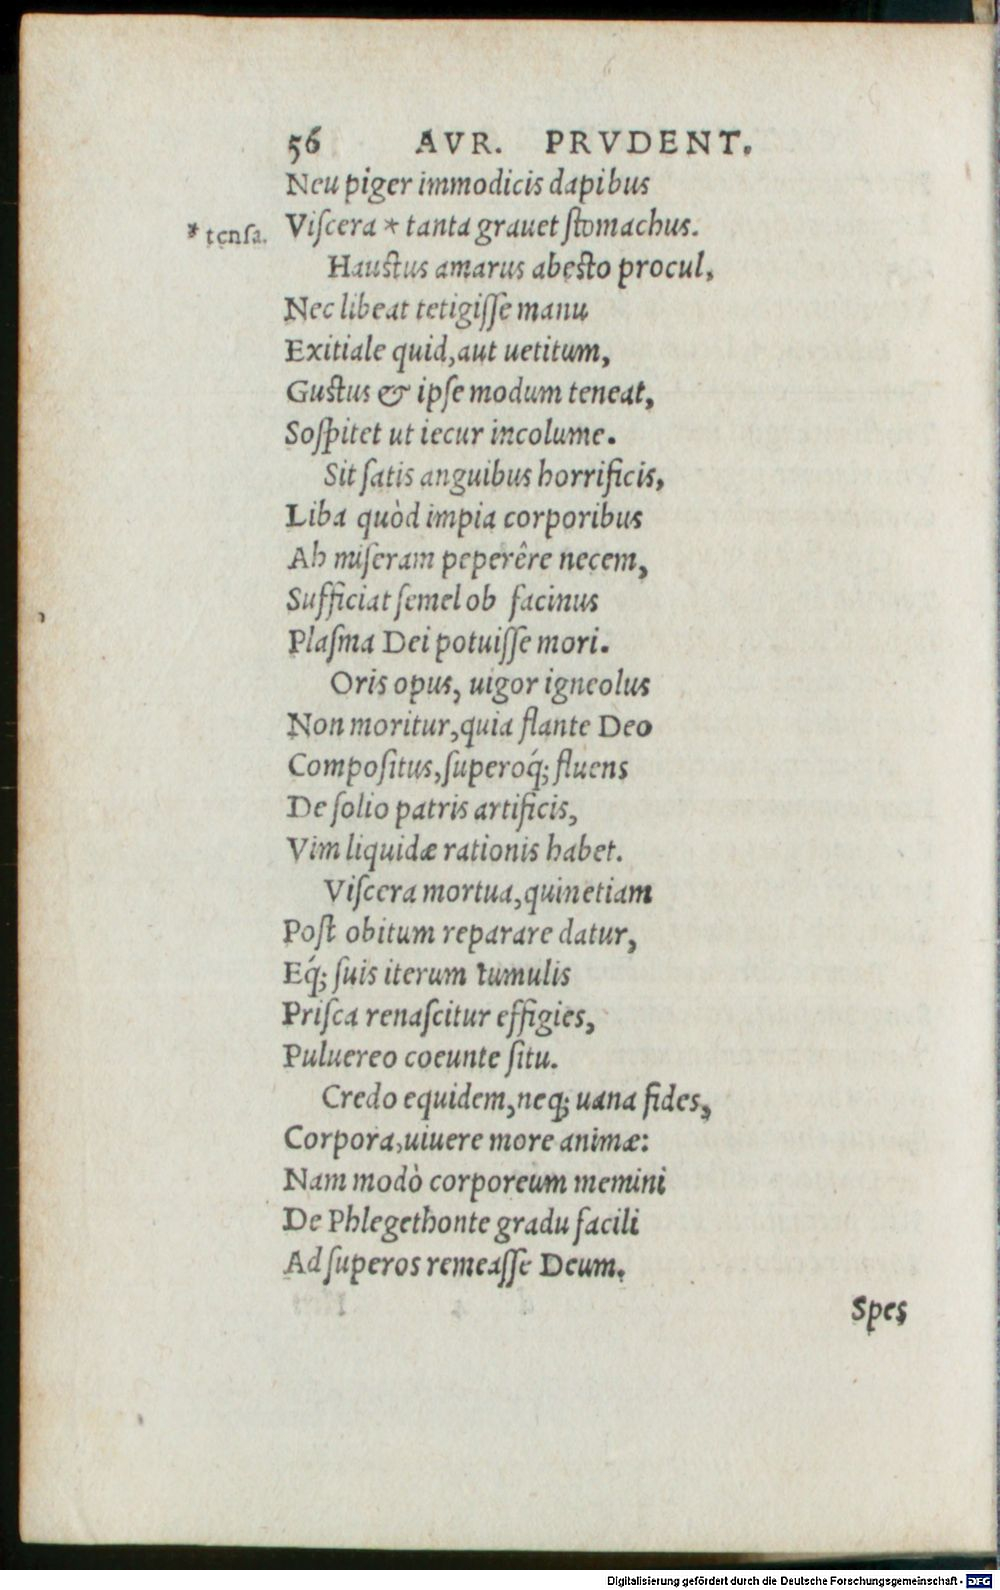 56 AVR. PRVDENT.
Neu piger immodicis dapibus
* tensa. Viſcera * tanta grauet ſtomachus.
Hauſtus amarus abeſto procul,
Nec libeat tetigiſſe manu
Exitiale quid, aut uetitum,
Guſtus & ipſe modum teneat,
Soſpitet ut iecur incolume.
Sit ſatis anguibus horrificis,
Liba quòd impia corporibus
Ah miſeram peperêre necem,
Sufficiat ſemel ob facinus
Plaſma Dei potuiſſe mori.
Oris opus, uigor igneolus
Non moritur, quia flante Deo
Compoſitus, ſuperoq́; fluens
De ſolio patris artificis,
Vim liquidæ rationis habet.
Viſcera mortua, quinetiam
Poſt obitum reparare datur,
Eq́; ſuis iterum tumulis
Priſca renaſcitur effigies,
Puluereo coeunte ſitu.
Credo equidem, neq; uana fides,
Corpora, uiuere more animæ:
Nam modò corporeum memini
De Phlegethonte gradu facili
Ad ſuperos remeaſſe Deum.
Spes
Digitalisierung gefördert durch die Deutsche Forschungsgemeinschaft - DFG